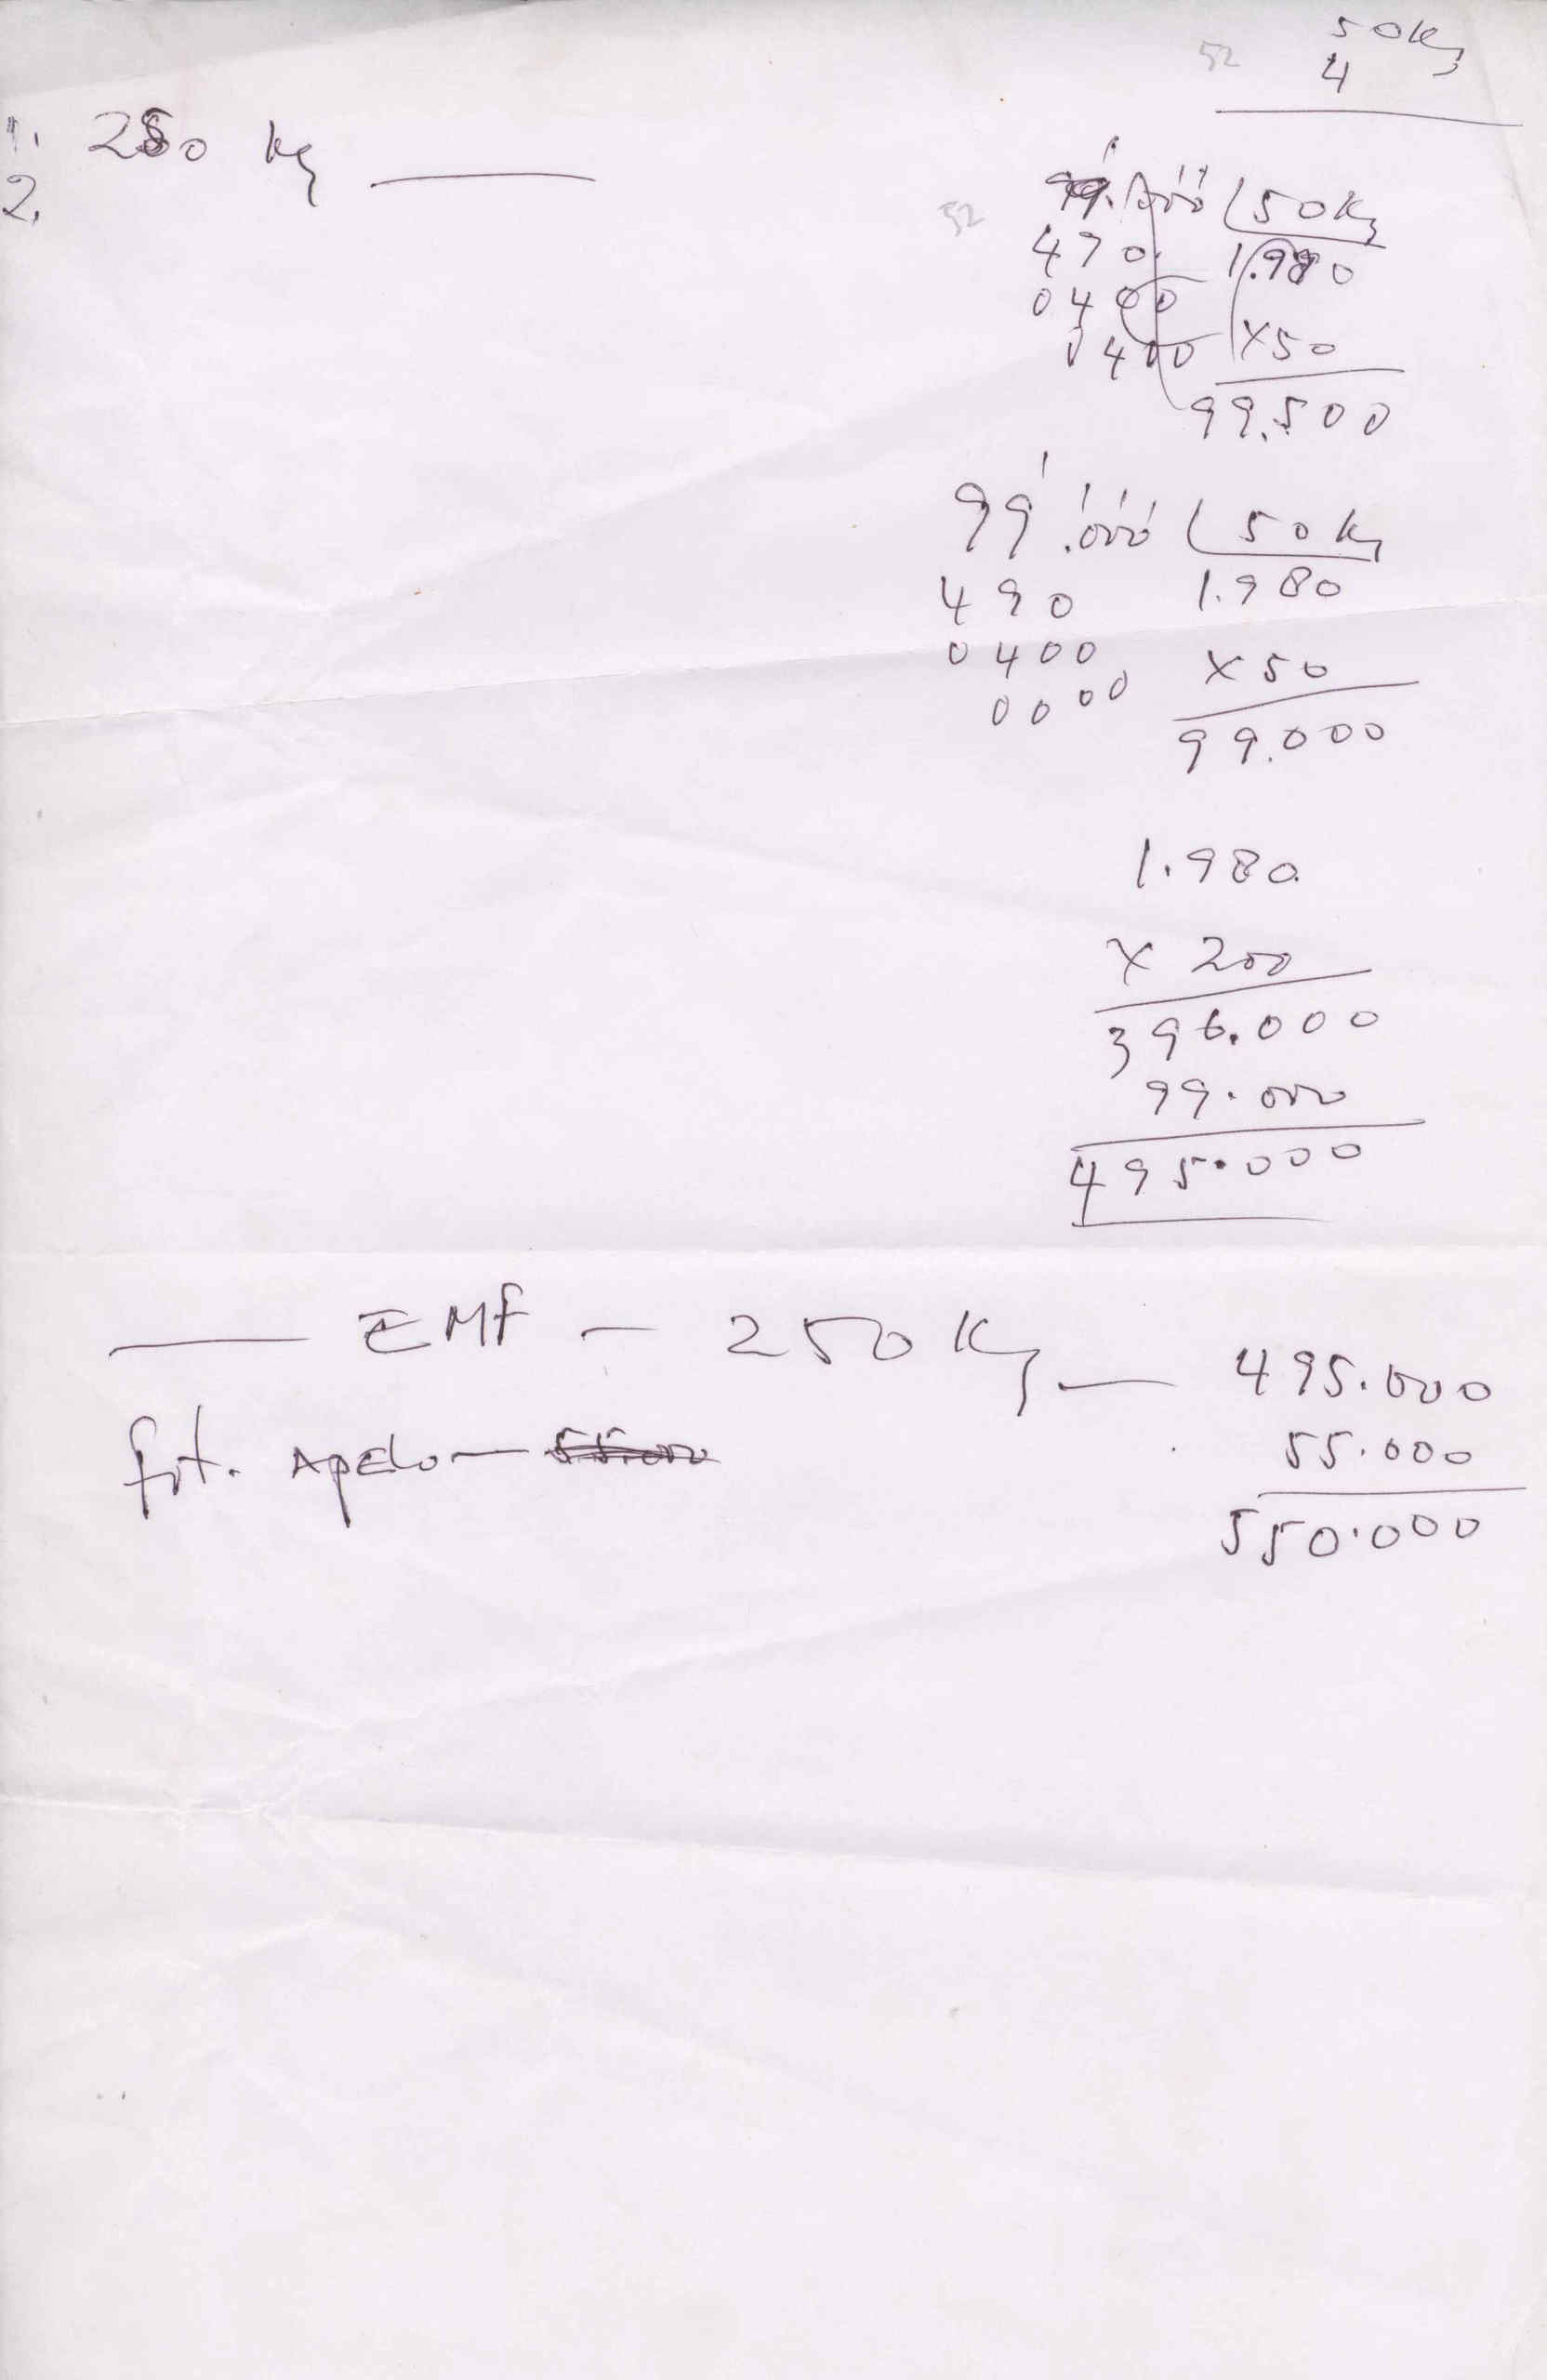 50Kg
52 4
1. 250 kg
2.
99.000 50Kg
52
490 1.980
0400
0400 X50
99.500
99.000 50Kg
490 1.980
0400 X50
0000
99.000
1.980
X 200
396.000
99.000
495.000
EMF - 250 Kg - 495.000
55.000
fot. Apelo - 55.000
550.000